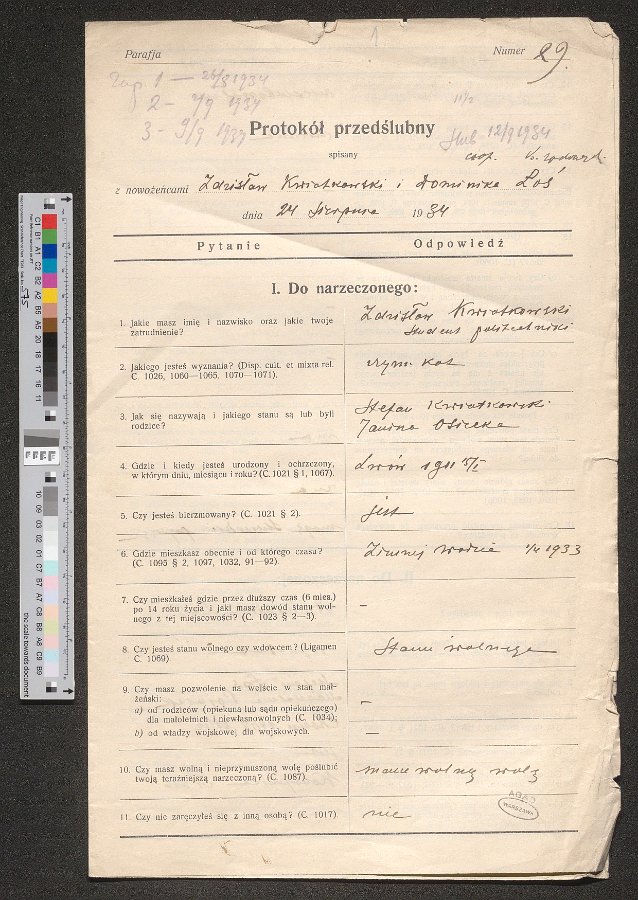 1
Parafja Numer 29.
Zap. 1 — 26/8 1934
2 - 2/9 1934
3 - 9/9 1934
11 1/2
Protokół przedślubny
Ślub 12/9 1934
spisany
coop.
z nowożeńcami Zdzisław Kwiatkowski i Dominika Łoś
dnia 24 sierpnia 1934
Pytanie Odpowiedź
I. Do narzeczonego:
1. Jakie masz imię i nazwisko oraz jakie twoje
zatrudnienie?
Zdzisław Kwiatkowski
student politechniki
2. Jakiego jesteś wyznania? (Disp. cult. et mixta rel.
C. 1026, 1060—1065, 1070—1071).
rzym. kat
3. Jak się nazywają i jakiego stanu są lub byli
rodzice?
Stefan Kwiatkowski
Janina Osiecka
4. Gdzie i kiedy jesteś urodzony i ochrzczony,
w którym dniu, miesiącu i roku? (C. 1021 § 1, 1067).
Lwów 1911 5/I
5. Czy jesteś bierzmowany? (C. 1021 § 2).
jest
6. Gdzie mieszkasz obecnie i od którego czasu?
(C. 1095 § 2, 1097, 1032, 91—92).
Zimnej wodzie 1/4 1933
7. Czy mieszkałeś gdzie przez dłuższy czas (6 mies.)
po 14 roku życia i jaki masz dowód stanu wol-
nego z tej miejscowości? (C. 1023 § 2—3).
–
8. Czy jesteś stanu wolnego czy wdowcem? (Ligamen
C. 1069).
Stanu wolnego
9. Czy masz pozwolenie na wejście w stan mał-
żeński:
a) od rodziców (opiekuna lub sądu opiekuńczego)
dla małoletnich i niewłasnowolnych (C. 1034);
–
b) od władzy wojskowej dla wojskowych.
–
10. Czy masz wolną i nieprzymuszoną wolę poślubić
twoją teraźniejszą narzeczoną? (C. 1087).
mam wolną wolę
11. Czy nie zaręczyłeś się z inną osobą? (C. 1017).
nie
AGAD
WARSZAWA
C1 B1 A1 C2 B2 A2 B5 A5 20 18 17 16 11
575
10 09 03 02 01 C7 B7 A7 C8 B8 A8 C9 B9
the scale towards document